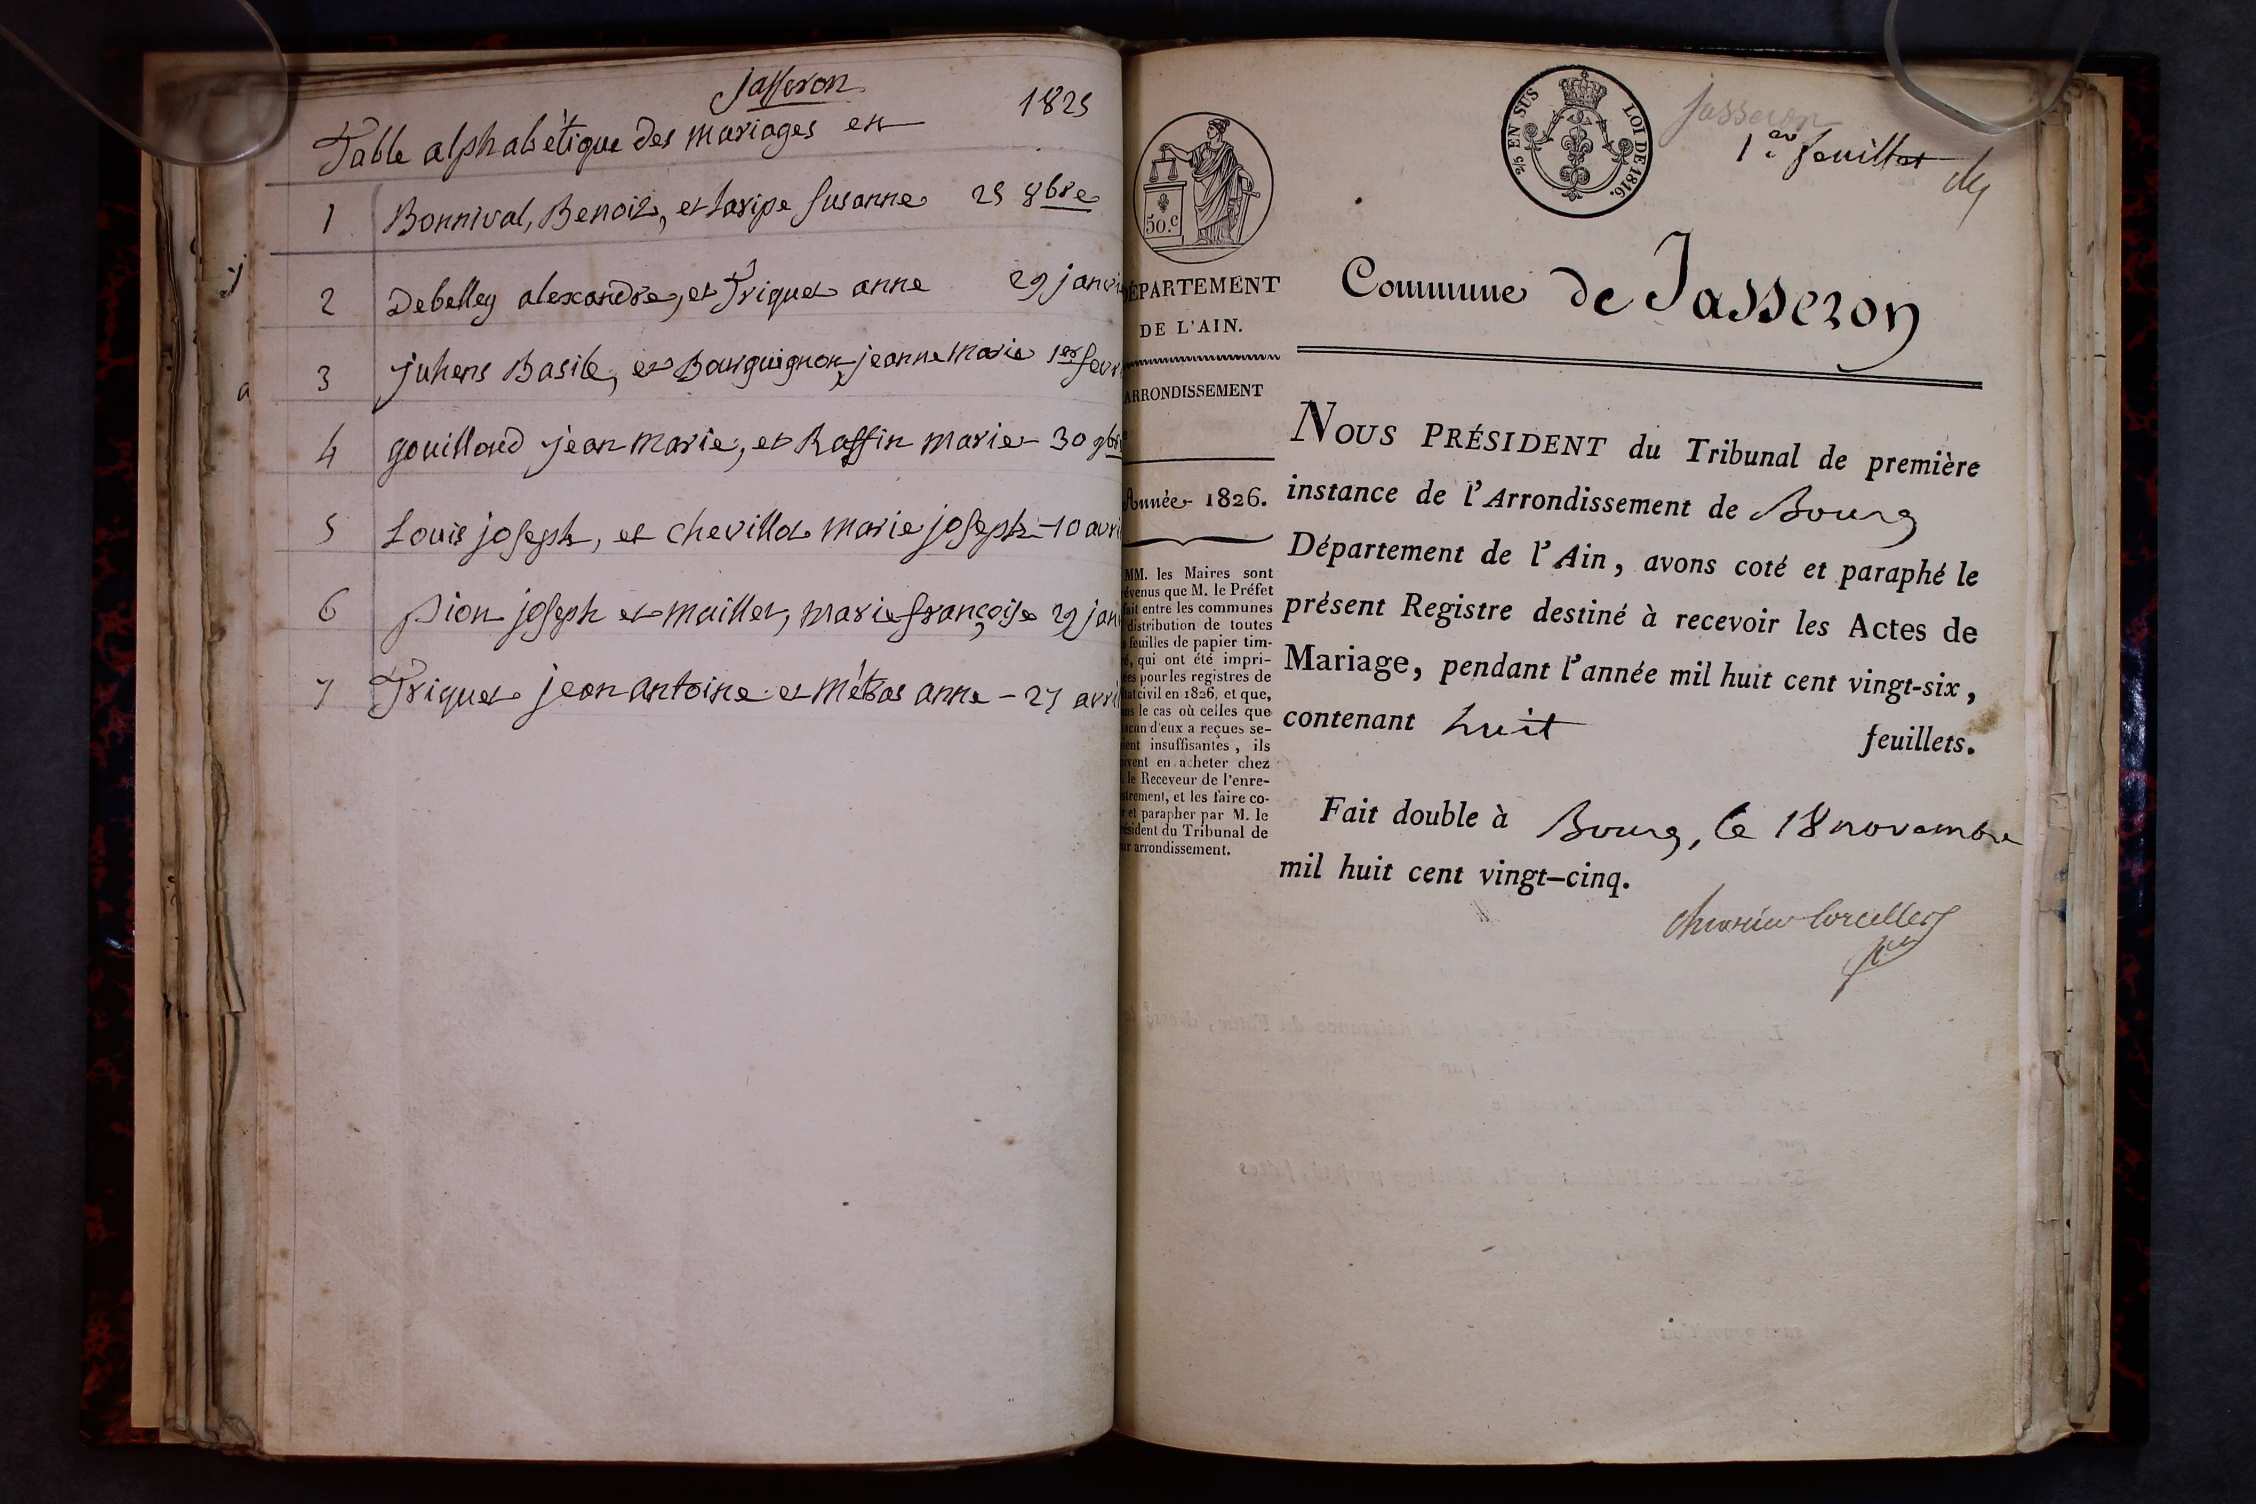 Jasseron
Table alphabétique des mariages en 1825
1 Bonnival, Benoit, et Laripe Susanne 25 8bre
2 Debelley alexandre, et Triquet anne 29 janvi
3 juhens Basile, et Bourguignon jeanne Marie 1er fevr
4 gouilloud jean marie, et Raffin marie - 30 9bre
5 Louis joseph, et chevillot marie joseph - 10 avri
6 Pion joseph et maillet, marie françoise 29 jan
7 Triquet jean antoine et métras anne - 27 avril
2/5 EN SUS LOI DE 1816.
Jasseron
1er feuillet
50.c
DÉPARTEMENT
DE L'AIN.
ARRONDISSEMENT
Année 1826.
MM. les Maires sont
évenus que M. le Préfet
fait entre les communes
distribution de toutes
feuilles de papier tim-
é, qui ont été impri-
ées pour les registres de
tat civil en 1826, et que,
ns le cas où celles que
acun d'eux a reçues se-
ient insuffisantes, ils
ivent en acheter chez
le Receveur de l'enre-
strement, et les faire co-
r et parapher par M. le
ésident du Tribunal de
ur arrondissement.
Commune de Jasseron
NOUS PRÉSIDENT du Tribunal de première
instance de l'Arrondissement de Bourg
Département de l'Ain, avons coté et paraphé le
présent Registre destiné à recevoir les Actes de
Mariage, pendant l'année mil huit cent vingt-six,
contenant huit feuillets.
Fait double à Bourg, le 18 novembre
mil huit cent vingt-cinq.